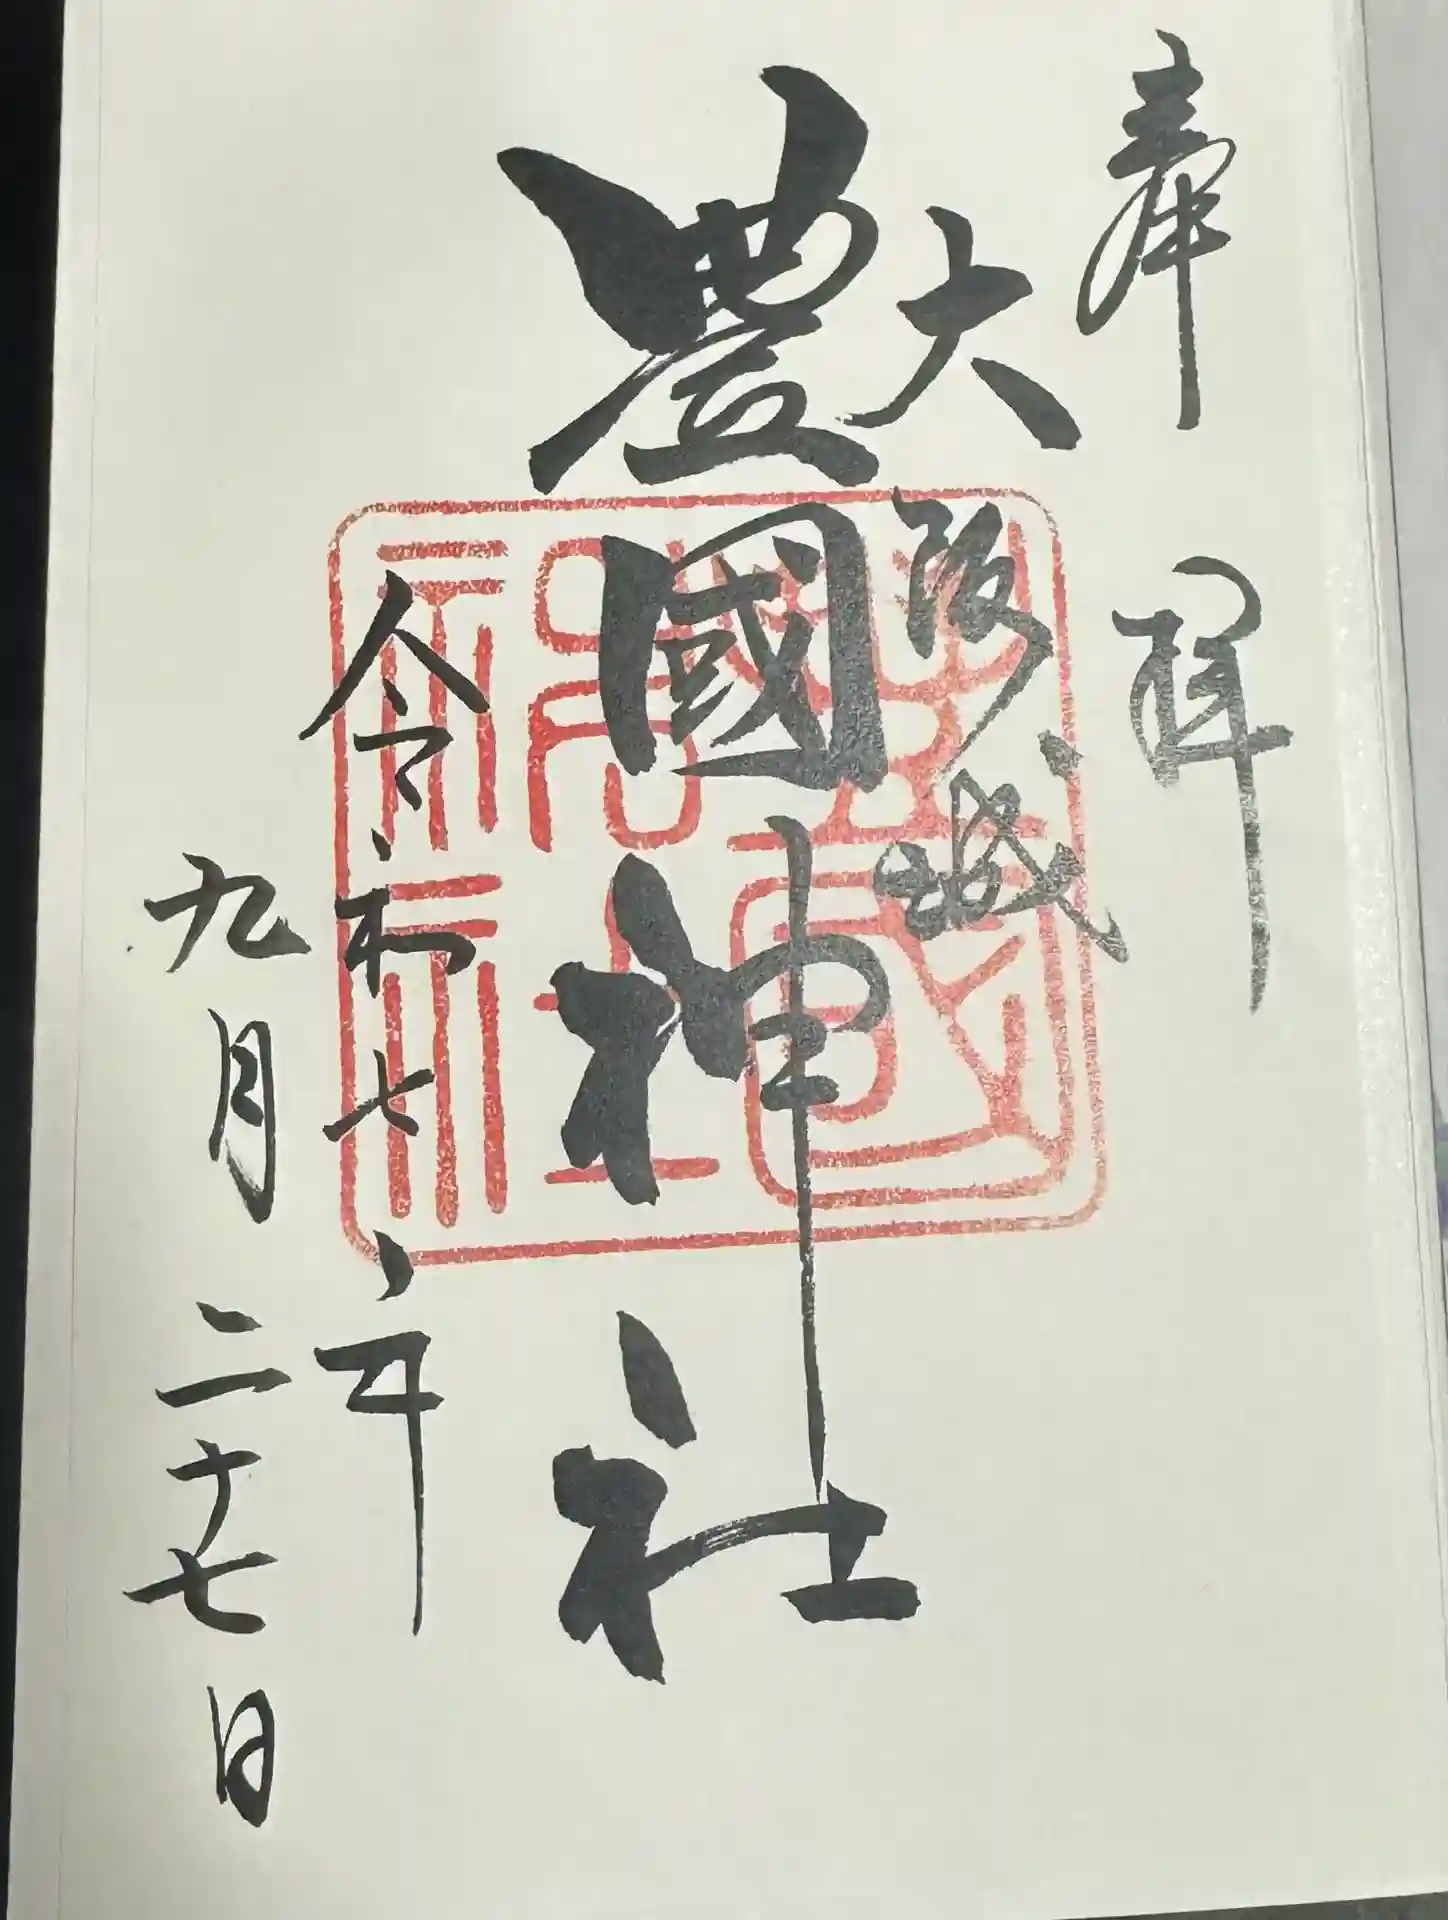 奉拝
大阪城
豊國神社
令和七年
九月二十七日
豊國神社